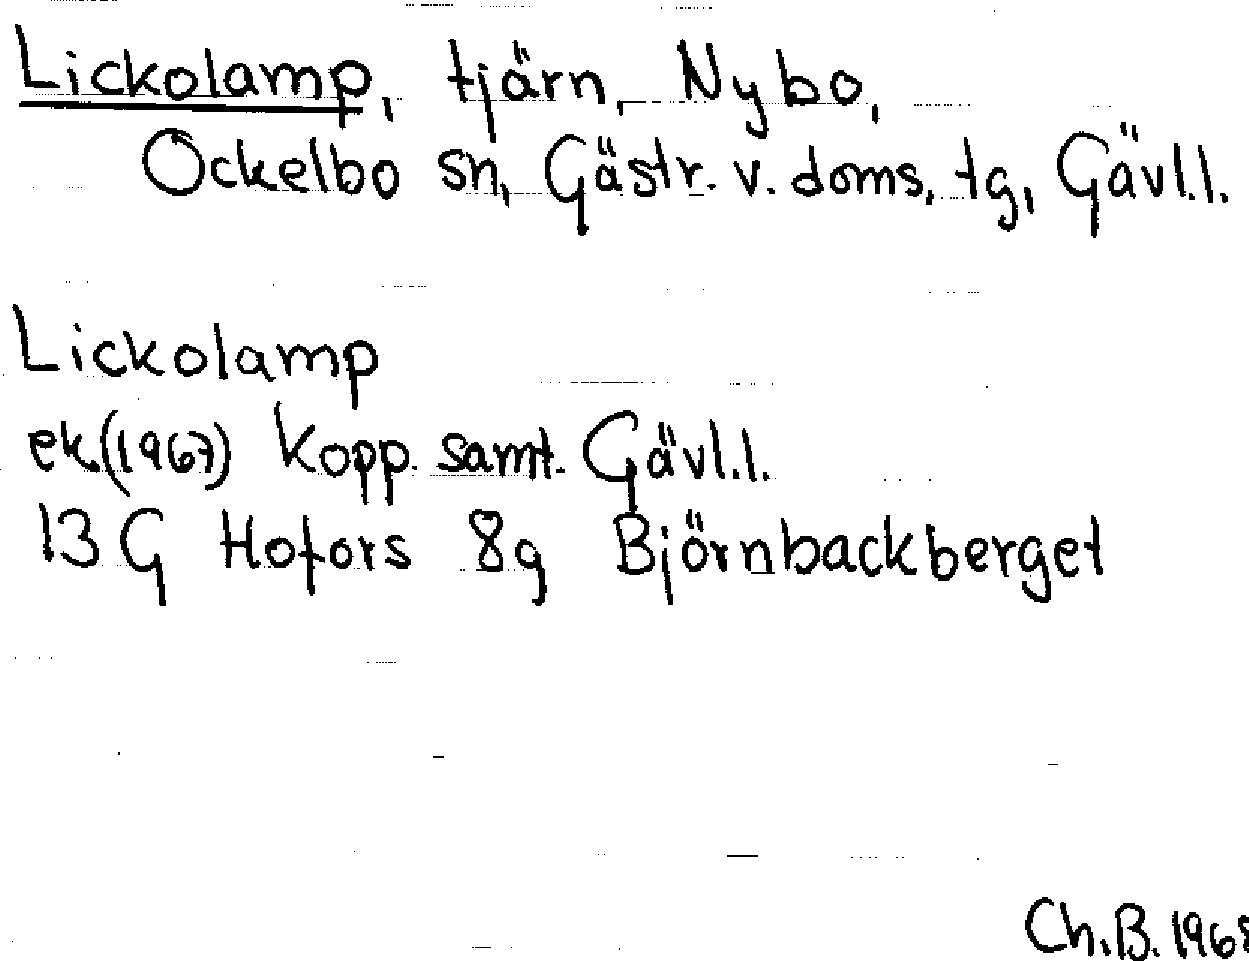 Lickolamp, tjärn, Nybo,
Ockelbo sn, Gästr. v. doms. tg, Gävl.l.
Lickolamp
ek.(1967) Kopp. samt. Gävl.l.
13 G Hofors 8g Björnbackberget
Ch.B. 1968